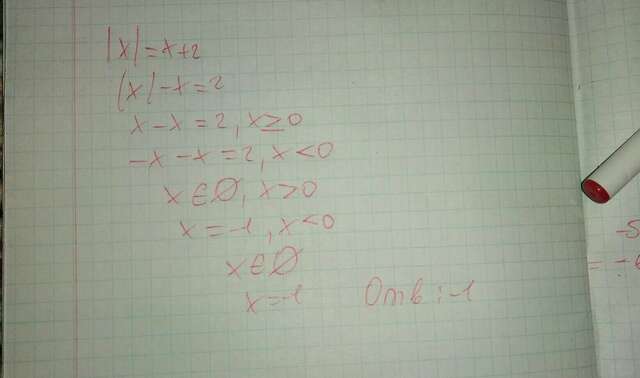 |x|=x+2
|x|-x=2
x-x=2, x≥0
-x-x=2, x<0
x∈∅, x>0
x=-1, x<0
x∈∅
x=-1
Отв:-1
-5
=-6